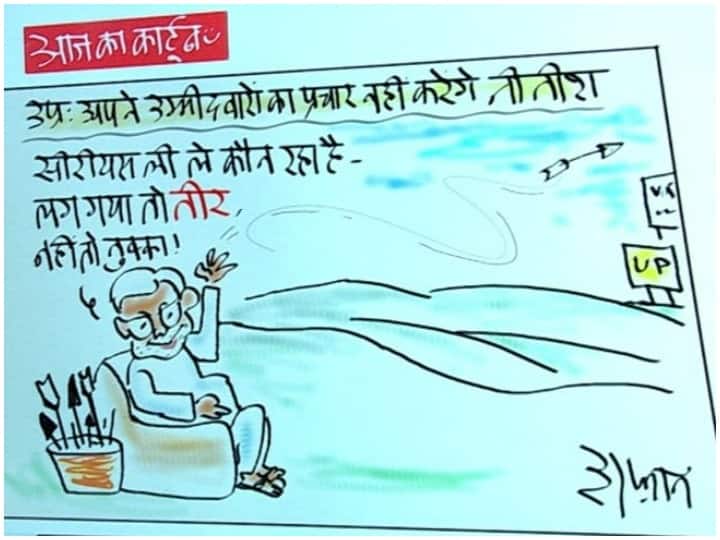 आज का कार्टून
उप्र: अपने उम्मीदवारों का प्रचार नहीं करेंगे नीतीश
सीरीयसली ले कौन रहा है-
लग गया तो तीर
नहीं तो तुक्का!
UP
इरफ़ान